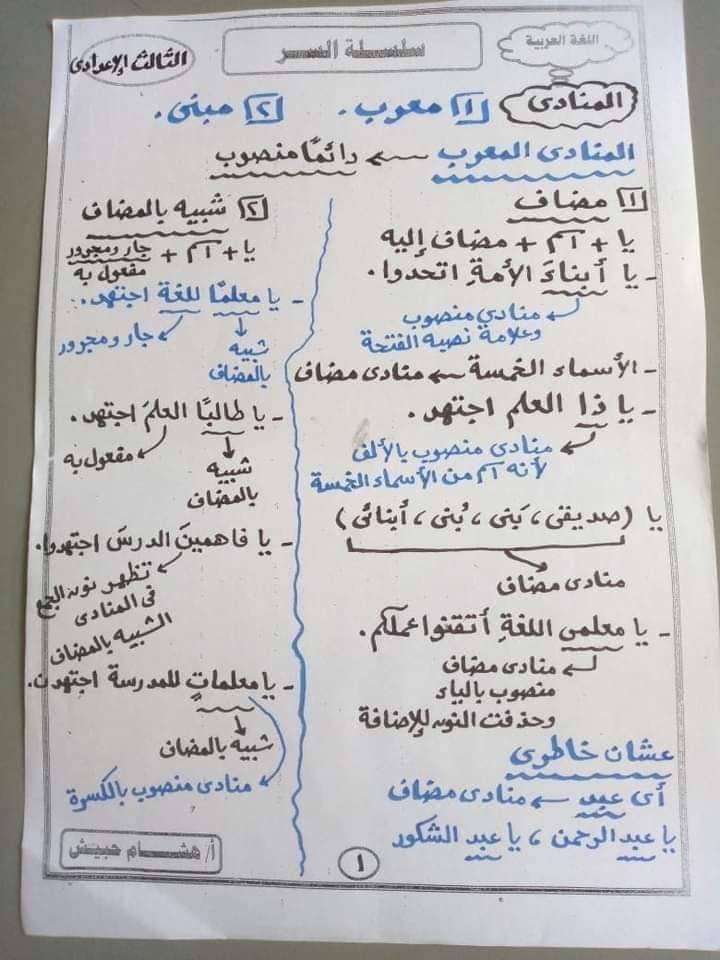 اللغة العربية
سلسلة السر
الثالث الإعدادى
المنادى ١ معرب . ٢ مبنى .
المنادى المعرب ← دائمًا منصوب
١ مضاف
يا + اسم + مضاف إليه
- يا أبناءَ الأمةِ اتحدوا .
منادى منصوب
وعلامة نصبه الفتحة
- الأسماء الخمسة ← منادى مضاف
- يا ذا العلم اجتهد .
منادى منصوب بالألف
لأنه اسم من الأسماء الخمسة
يا (صديقى ، بَنى ، بُنى ، أبنائى)
منادى مضاف
- يا معلمى اللغةِ أتقنوا عملكم .
منادى مضاف
منصوب بالياء
وحذفت النون للإضافة
عشان خاطرى
أى عبد ← منادى مضاف
يا عبد الرحمن ، يا عبد الشكور
٢ شبيه بالمضاف
يا + اسم + جار ومجرور
مفعول به
- يا معلمًا للغة اجتهد .
شبيه بالمضاف
جار ومجرور
- يا طالبًا العلمَ اجتهد .
مفعول به
شبيه بالمضاف
- يا فاهمينَ الدرسَ اجتهدوا .
تظهر نون الجمع
فى المنادى
الشبيه بالمضاف
- يا معلماتٍ للمدرسة اجتهدن .
شبيه بالمضاف
منادى منصوب بالكسرة
أ/ هشام حبيش
١